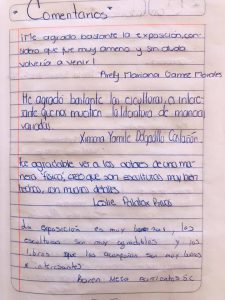 "Comentarios"
¡Me agrado bastante la exposición, con
sidero que fue muy amena y sin duda
volvería a venir!
Arelly Mariana Gamez Morales
Me agradó bastante las esculturas, es intere
sante que nos muestren la literatura de maneras
variadas.
Ximena Yamile Delgadillo Castañón.
Es agradable ver a los actores de una ma
nera física, creo que son esculturas muy bien
hechas, con muchos detalles.
Leslie Palafox
La exposición es muy buena, las
esculturas son muy agradables y los
libros que las acompañan son muy buenos
e interesantes
Karen Meza